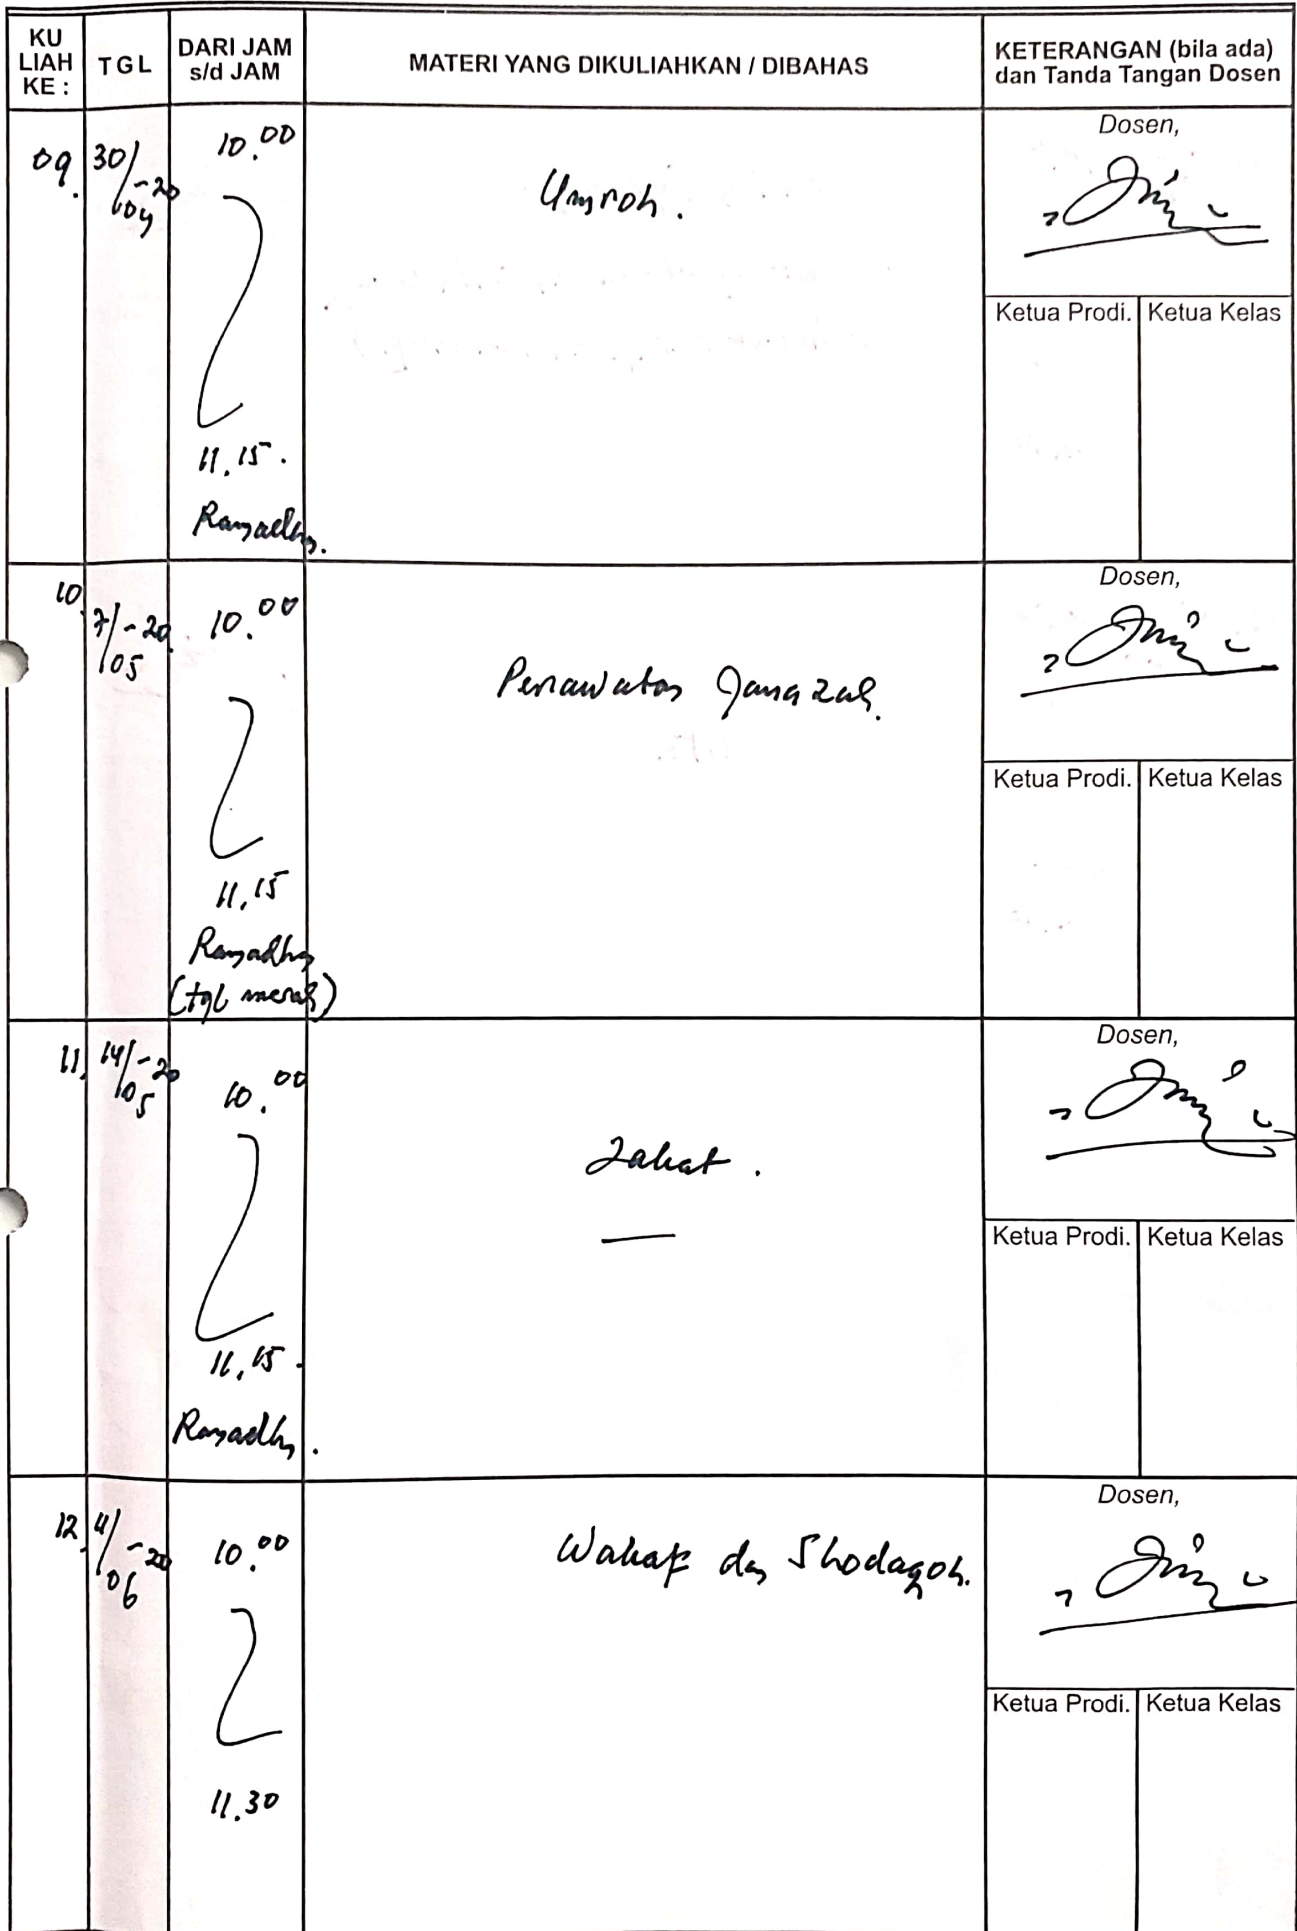 KU
LIAH
KE :
TGL
DARI JAM
s/d JAM
MATERI YANG DIKULIAHKAN / DIBAHAS
KETERANGAN (bila ada)
dan Tanda Tangan Dosen
09.
30/04-20
10.00
11.15.
Ramadhn.
Umroh.
Dosen,
Ketua Prodi. Ketua Kelas
10.
7/05-20
10.00
11.15
Ramadhn
(tgl merah)
Perawatan Janazah.
Dosen,
Ketua Prodi. Ketua Kelas
11.
14/05-20
10.00
11.15.
Ramadhn.
Zakat.
Dosen,
Ketua Prodi. Ketua Kelas
12.
4/06-20
10.00
11.30
Wakaf dan Shodaqoh.
Dosen,
Ketua Prodi. Ketua Kelas